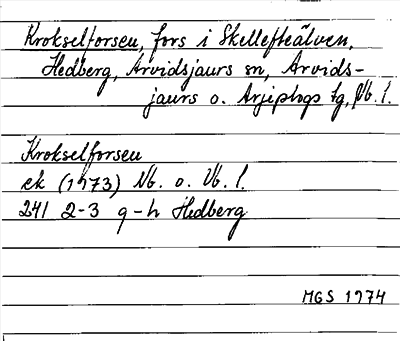 Krokselforsen, fors i Skellefteälven,
Hedberg, Arvidsjaurs sn, Arvids-
jaurs o. Arjeplogs tg, Nb. l.
Krokselforsen
ek (1973) Nb. o. Vb. l.
241 2-3 g-h Hedberg
MGS 1974